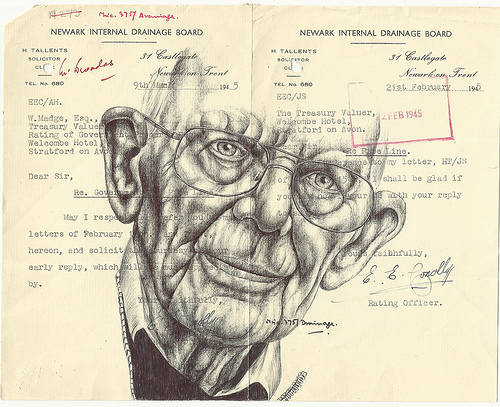 Mic. 375/ Drainage.
NEWARK INTERNAL DRAINAGE BOARD
H TALLENTS
SOLICITOR
31 Castlegate
Newark-on-Trent
TEL No. 680
9th 194 5
EEC/AH.
W.Madge, Esq.,
Treasury Valuer
Rating of Government
Welcombe Hotel
Stratford on Avon
Dear Sir,
Re. Government
May I
letters of February
hereon, and solicit
early reply, which will
by.
faithfully,
NEWARK INTERNAL DRAINAGE BOARD
H. TALLENTS
SOLICITOR
31 Castlegate
Newark-on-Trent
TEL No. 680
21st February 194
2 FEB 1945
EEC/JS
The Treasury Valuer,
Welcombe Hotel,
Stratford on Avon.
Re Line.
to my letter, HT/JS
shall be glad if
with your reply
faithfully,
E. E. Conolly
Rating Officer.
Mic. 375/ Drainage.